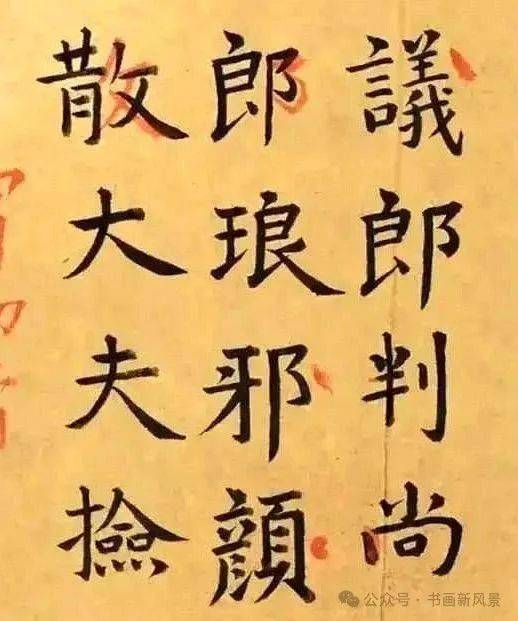 議郎判尚
郎琅邪顔
散大夫撿
公众号·书画新风景